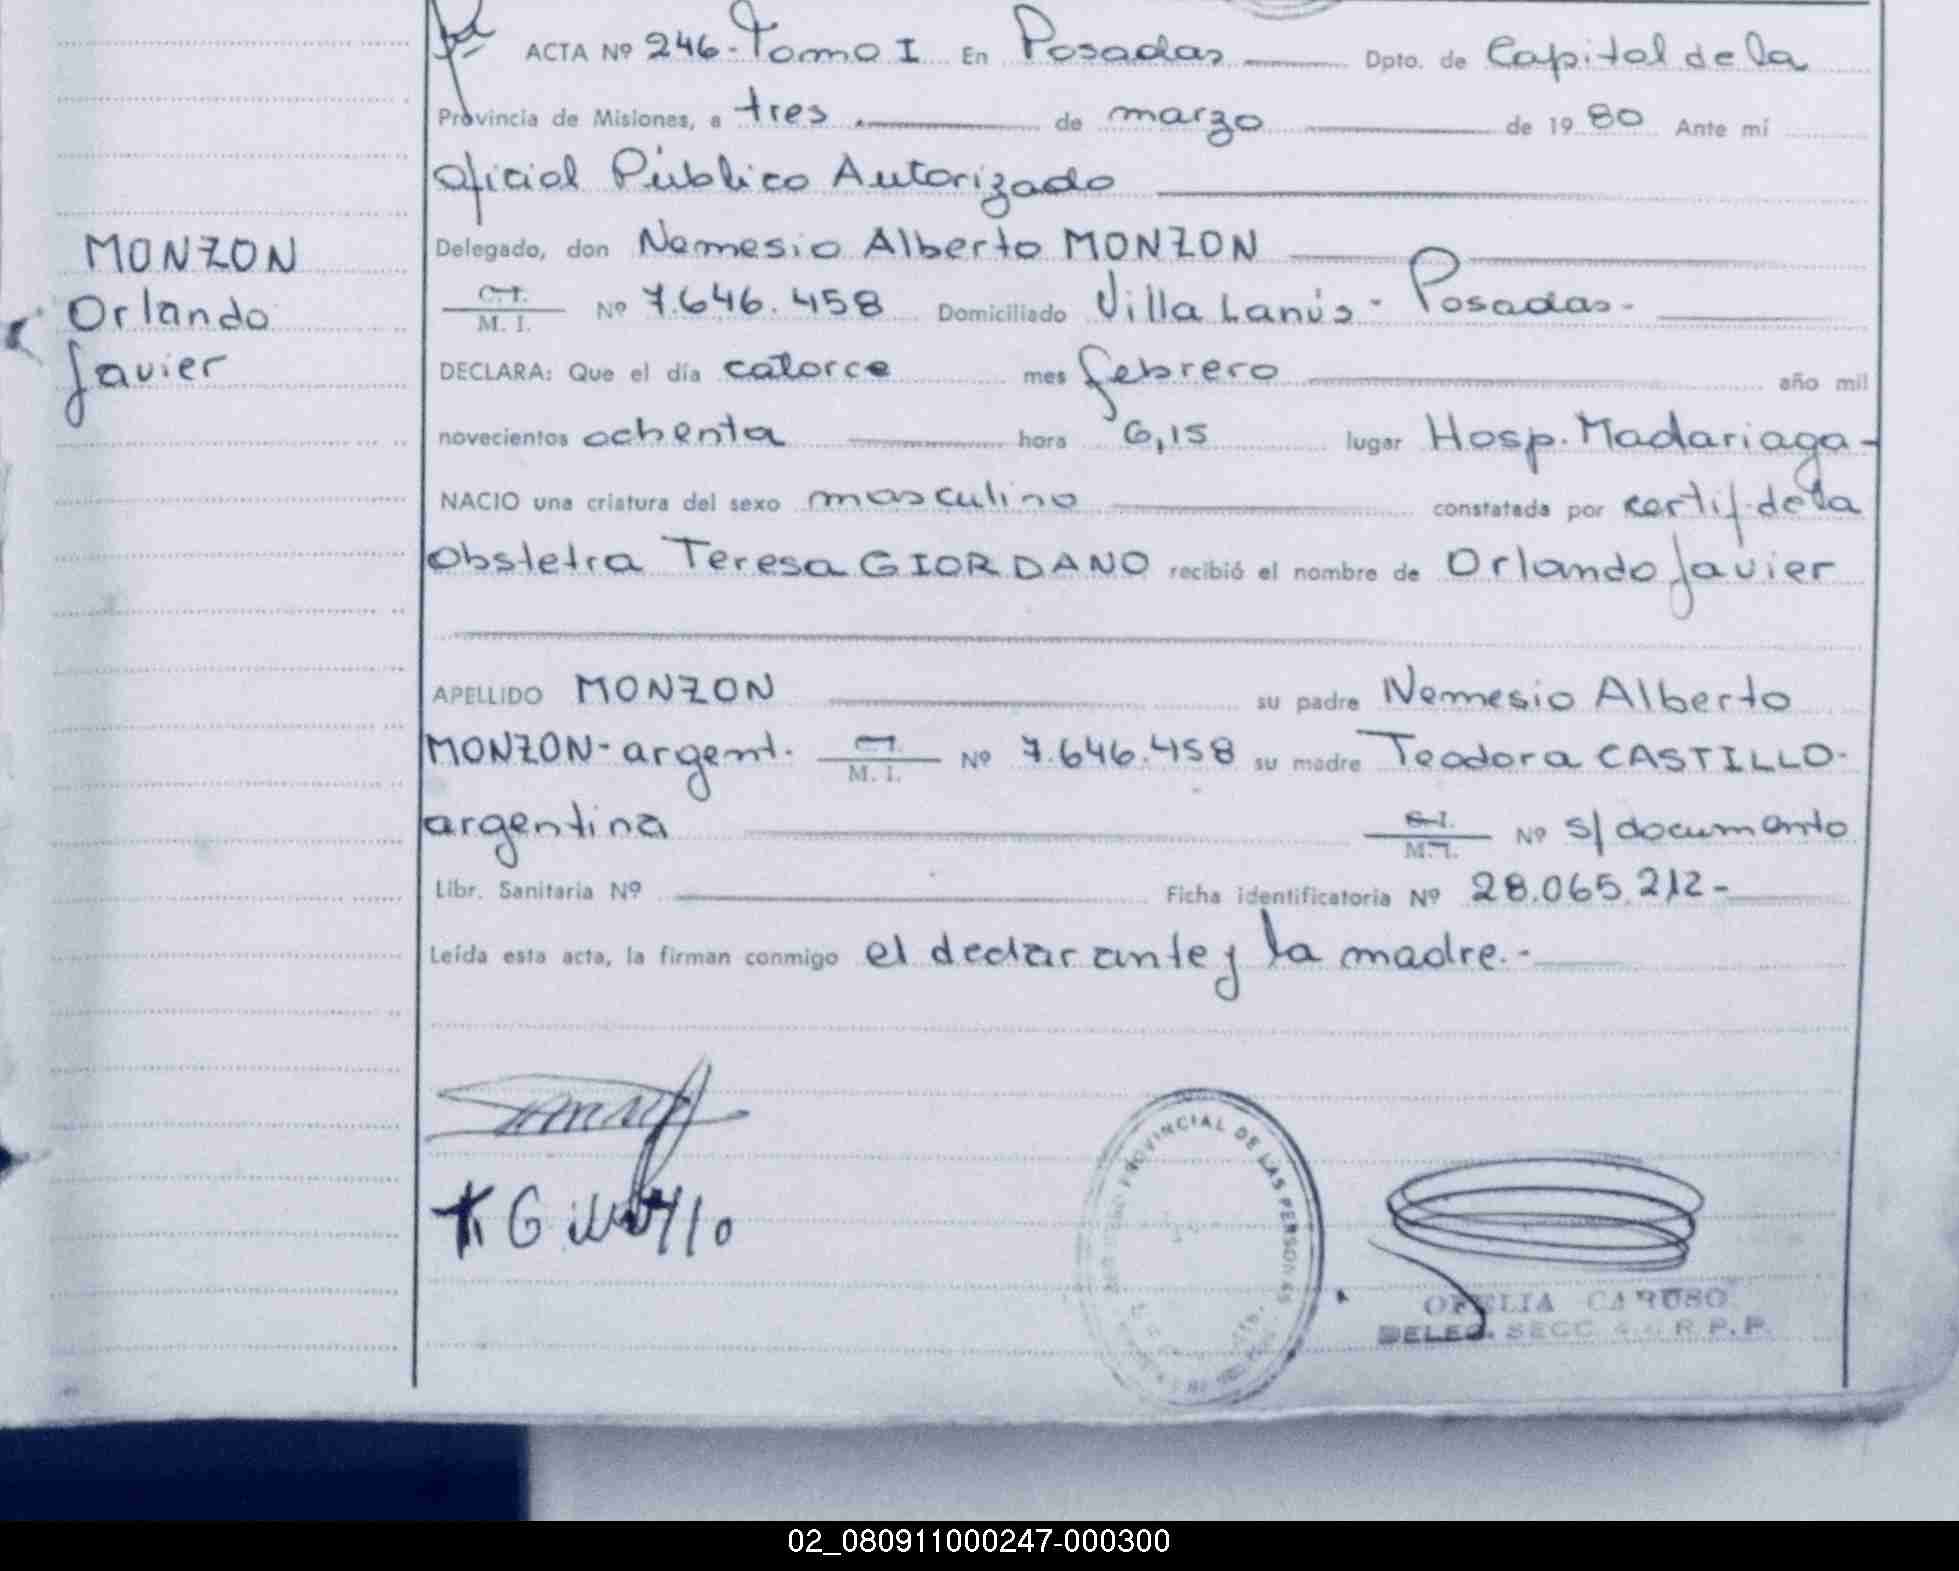 ACTA Nº 246- Tomo I En Posadas Dpto. de Capital de la
Provincia de Misiones, a tres de marzo de 1980 Ante mí
Oficial Público Autorizado
MONZON
Orlando
Javier
Delegado, don Nemesio Alberto MONZON
C. I.
M. I. Nº 7.646.458 Domiciliado Villa Lanús - Posadas-
DECLARA: Que el día catorce mes febrero año mil
novecientos ochenta hora 6,15 lugar Hosp. Madariaga-
NACIO una criatura del sexo masculino constatada por certif. de la
Obstetra Teresa GIORDANO recibió el nombre de Orlando Javier
APELLIDO MONZON su padre Nemesio Alberto
MONZON- argent. M. I. Nº 7.646.458 su madre Teodora CASTILLO-
argentina C. I. M. I. Nº s/ documento
Libr. Sanitaria Nº Ficha identificatoria Nº 28.065.212-
Leída esta acta, la firman conmigo el declarante y la madre.-
PROVINCIAL DE LAS PERSONAS
OFELIA CARUSO
DELEG. SECC. R.P.P.
02_080911000247-000300